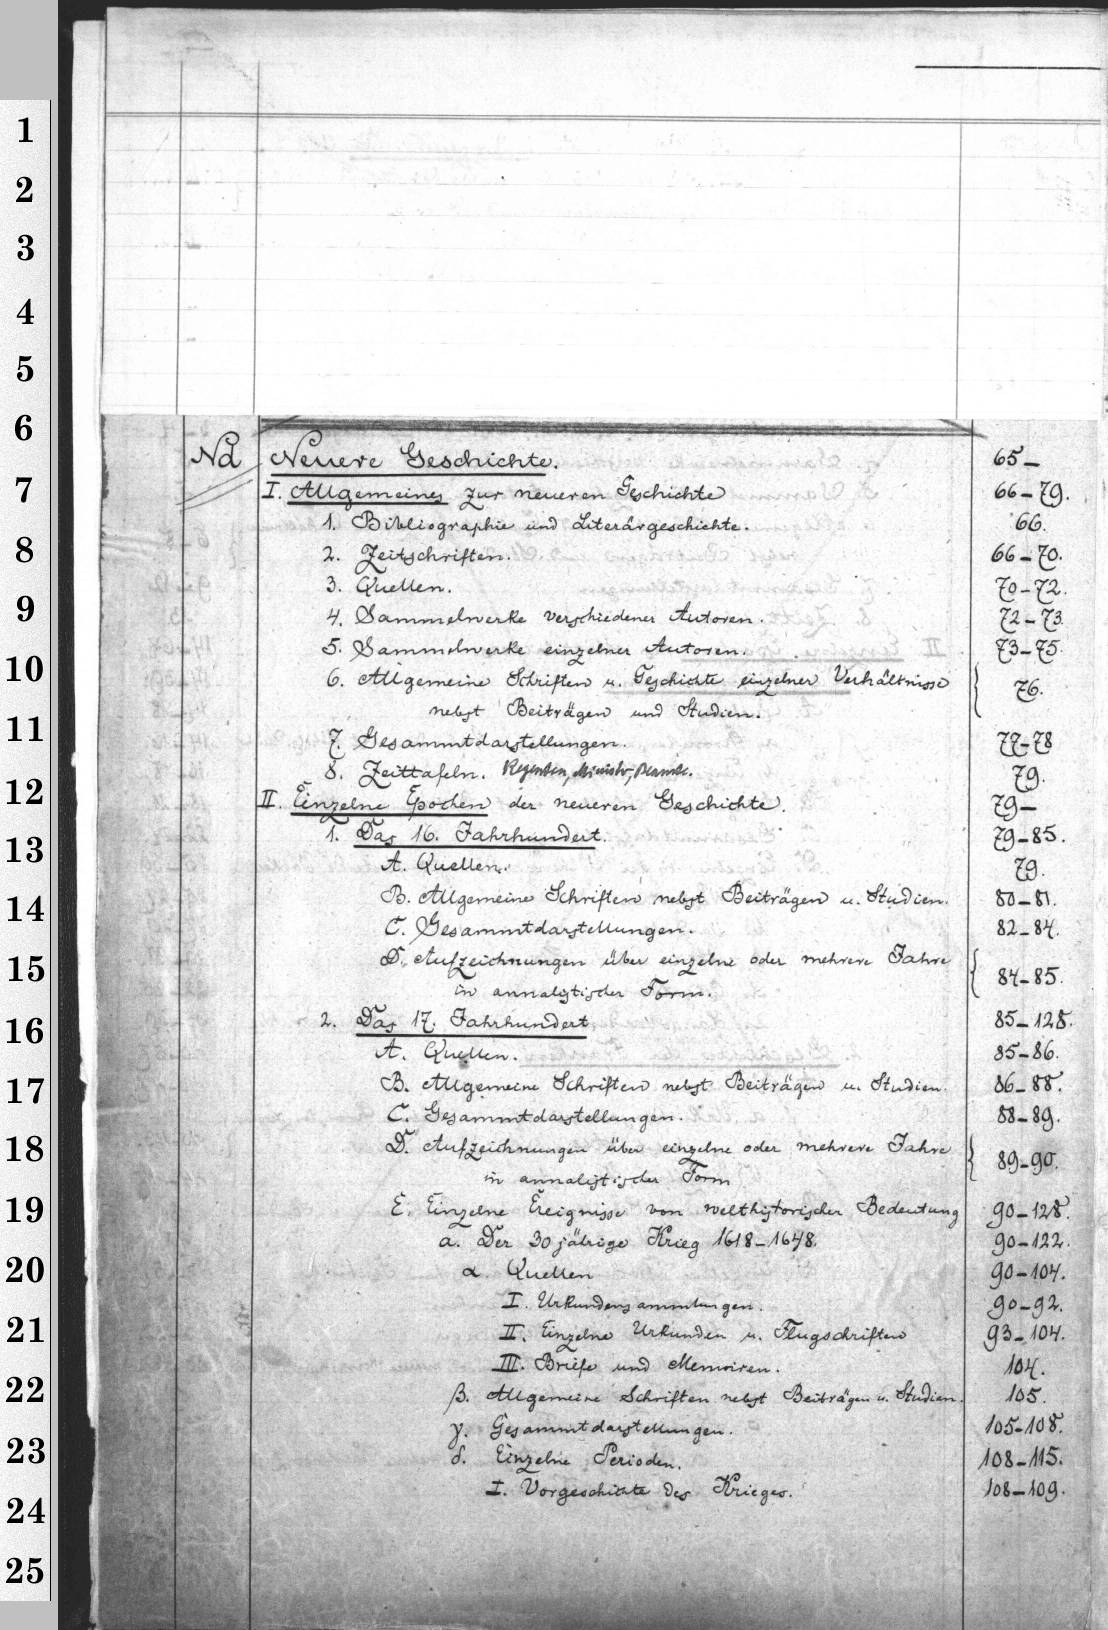 1
2
3
4
5
6
7
8
9
10
11
12
13
14
15
16
17
18
19
20
21
22
23
24
25
Nd Neuere Geschichte. 65–
I. Allgemeines zur neueren Geschichte 66–79.
1. Bibliographie und Literärgeschichte. 66.
2. Zeitschriften. 66–70.
3. Quellen. 70–72.
4. Sammelwerke verschiedener Autoren. 72–73.
5. Sammelwerke einzelner Autoren. 73–75.
6. Allgemeine Schriften u. Geschichte einzelner Verhältnisse
nebst Beiträgen und Studien. 76.
7. Gesammtdarstellungen. 77–78
8. Zeittafeln. Regenten, Minister, 79.
II. Einzelne Epochen der neueren Geschichte. 79–
1. Das 16. Jahrhundert. 79–85.
A. Quellen. 79.
B. Allgemeine Schriften nebst Beiträgen u. Studien. 80–81.
C. Gesammtdarstellungen. 82–84.
D. Aufzeichnungen über einzelne oder mehrere Jahre
in annalistischer Form. 84–85.
2. Das 17. Jahrhundert 85–128.
A. Quellen. 85–86.
B. Allgemeine Schriften nebst Beiträgen u. Studien. 86–88.
C. Gesammtdarstellungen. 88–89.
D. Aufzeichnungen über einzelne oder mehrere Jahre
in annalistischer Form 89–90.
E. Einzelne Ereignisse von welthistorischer Bedeutung 90–128.
a. Der 30 jährige Krieg 1618–1648. 90–122.
α. Quellen 90–104.
I. Urkundensammlungen. 90–92.
II. Einzelne Urkunden u. Flugschriften 93–104.
III. Briefe und Memoiren. 104.
β. Allgemeine Schriften nebst Beiträgen u. Studien. 105.
γ. Gesammtdarstellungen. 105–108.
δ. Einzelne Perioden. 108–115.
I. Vorgeschichte des Krieges. 108–109.